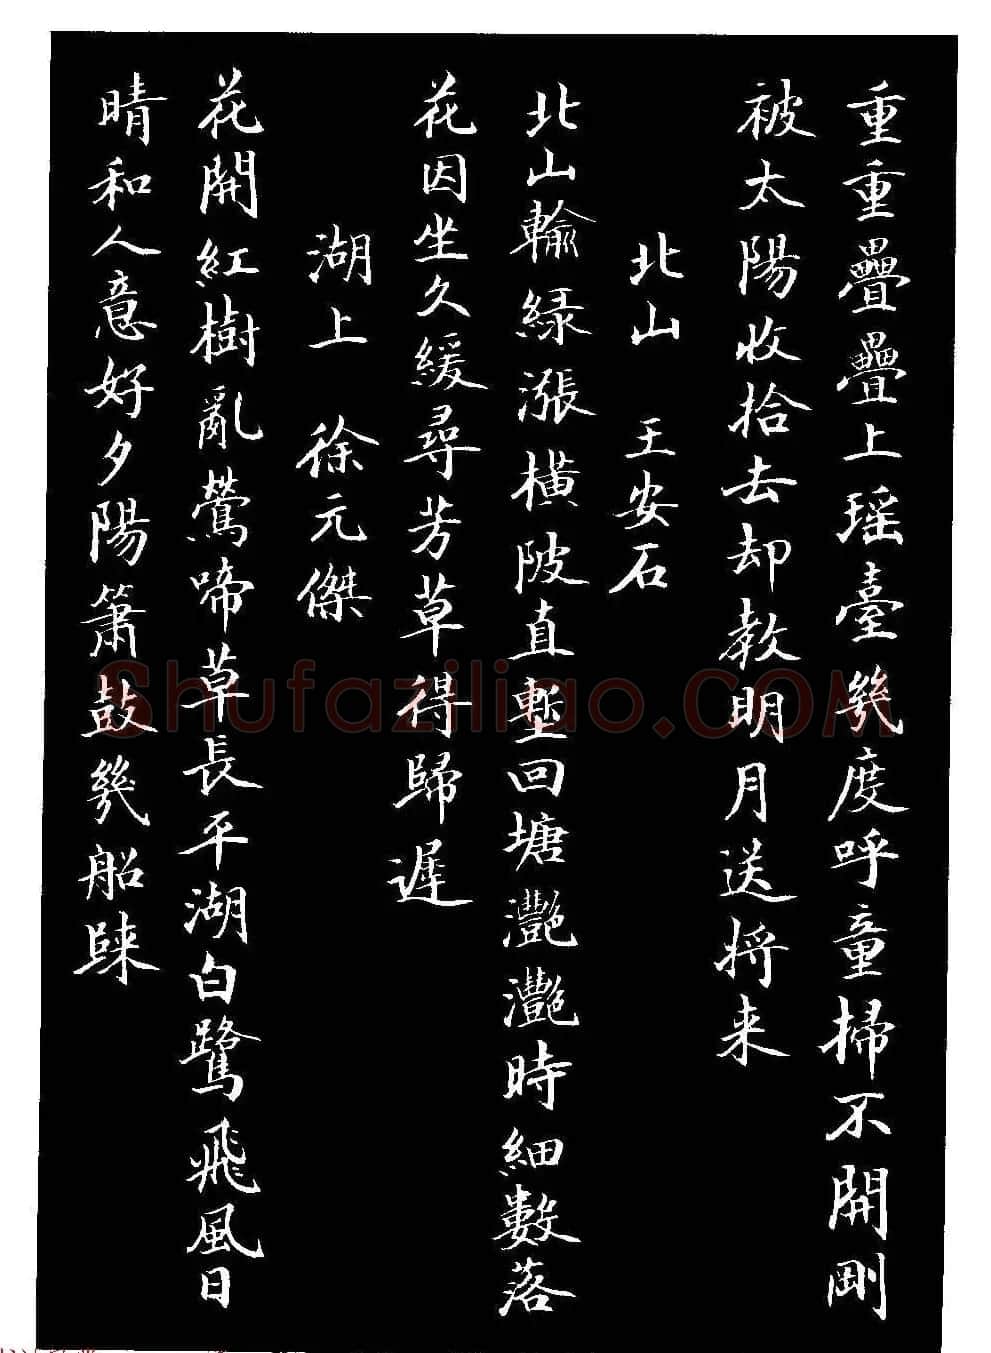 重重疊疊上瑶臺幾度呼童掃不開剛
被太陽收拾去却教明月送將来
北山 王安石
北山輸緑漲橫陂直塹回塘灔灔時細數落
花因坐久緩尋芳草得歸遲
湖上 徐元傑
花開紅樹亂鶯啼草長平湖白鷺飛風日
晴和人意好夕陽簫鼓幾船歸
Shufaziliao.COM